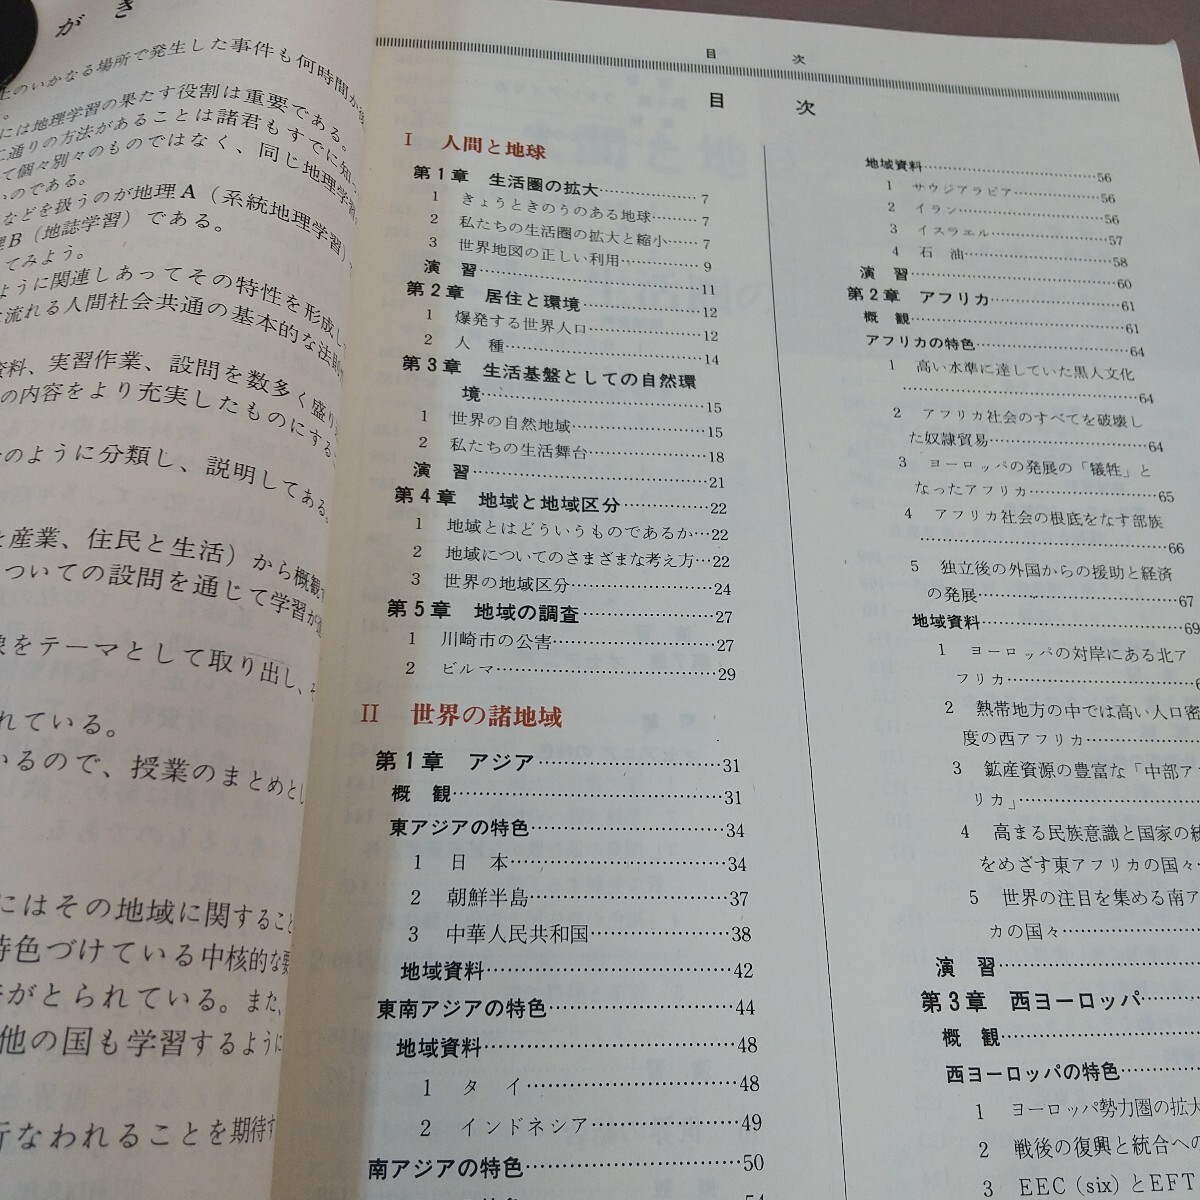 がき
上のいかなる場所で発生した事件も何時間か
には地理学習の果たす役割は重要である。
通りの方法があることは諸君もすでに知っ
て個々別々のものではなく、同じ地理学習
のである。
などを扱うのが地理A（系統地理学習）
理B（地誌学習）である。
てみよう。
ように関連しあってその特性を形成し
流れる人間社会共通の基本的な法則
資料、実習作業、設問を数多く盛り
の内容をより充実したものにする
のように分類し、説明してある。
と産業、住民と生活）から概観
ついての設問を通じて学習が
象をテーマとして取り出し、そ
れている。
いるので、授業のまとめとし
にはその地域に関すること
特色づけている中核的な要
がとられている。また、
他の国も学習するように
行なわれることを期待す
目 次
目 次
I 人間と地球
第1章 生活圏の拡大…………7
1 きょうときのうのある地球………7
2 私たちの生活圏の拡大と縮小……7
3 世界地図の正しい利用…………9
演 習…………11
第2章 居住と環境…………12
1 爆発する世界人口…………12
2 人 種…………14
第3章 生活基盤としての自然環
境…………15
1 世界の自然地域…………15
2 私たちの生活舞台…………18
演 習…………21
第4章 地域と地域区分…………22
1 地域とはどういうものであるか…22
2 地域についてのさまざまな考え方…22
3 世界の地域区分…………24
第5章 地域の調査…………27
1 川崎市の公害…………27
2 ビルマ…………29
II 世界の諸地域
第1章 アジア…………31
概 観…………31
東アジアの特色…………34
1 日 本…………34
2 朝鮮半島…………37
3 中華人民共和国…………38
地域資料…………42
東南アジアの特色…………44
地域資料…………48
1 タ イ…………48
2 インドネシア…………49
南アジアの特色…………50
地域資料…………56
1 サウジアラビア…………56
2 イラン…………56
3 イスラエル…………57
4 石 油…………58
演 習…………60
第2章 アフリカ…………61
概 観…………61
アフリカの特色…………64
1 高い水準に達していた黒人文化
…………64
2 アフリカ社会のすべてを破壊し
た奴隷貿易…………64
3 ヨーロッパの発展の「犠牲」と
なったアフリカ…………65
4 アフリカ社会の根底をなす部族
…………66
5 独立後の外国からの援助と経済
の発展…………67
地域資料…………69
1 ヨーロッパの対岸にある北ア
フリカ…………
2 熱帯地方の中では高い人口密
度の西アフリカ…………
3 鉱産資源の豊富な「中部ア
リカ」…………
4 高まる民族意識と国家の統
をめざす東アフリカの国々…
5 世界の注目を集める南ア
カの国々…………
演 習…………
第3章 西ヨーロッパ…………
概 観…………
西ヨーロッパの特色…………
1 ヨーロッパ勢力圏の拡大
2 戦後の復興と統合への
3 EEC（six）とEFT